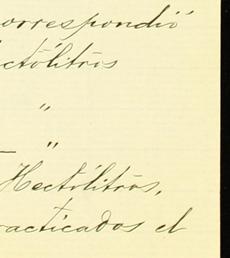 orrespondió
ctólitros
"
— "
Hectólitros,
racticados el